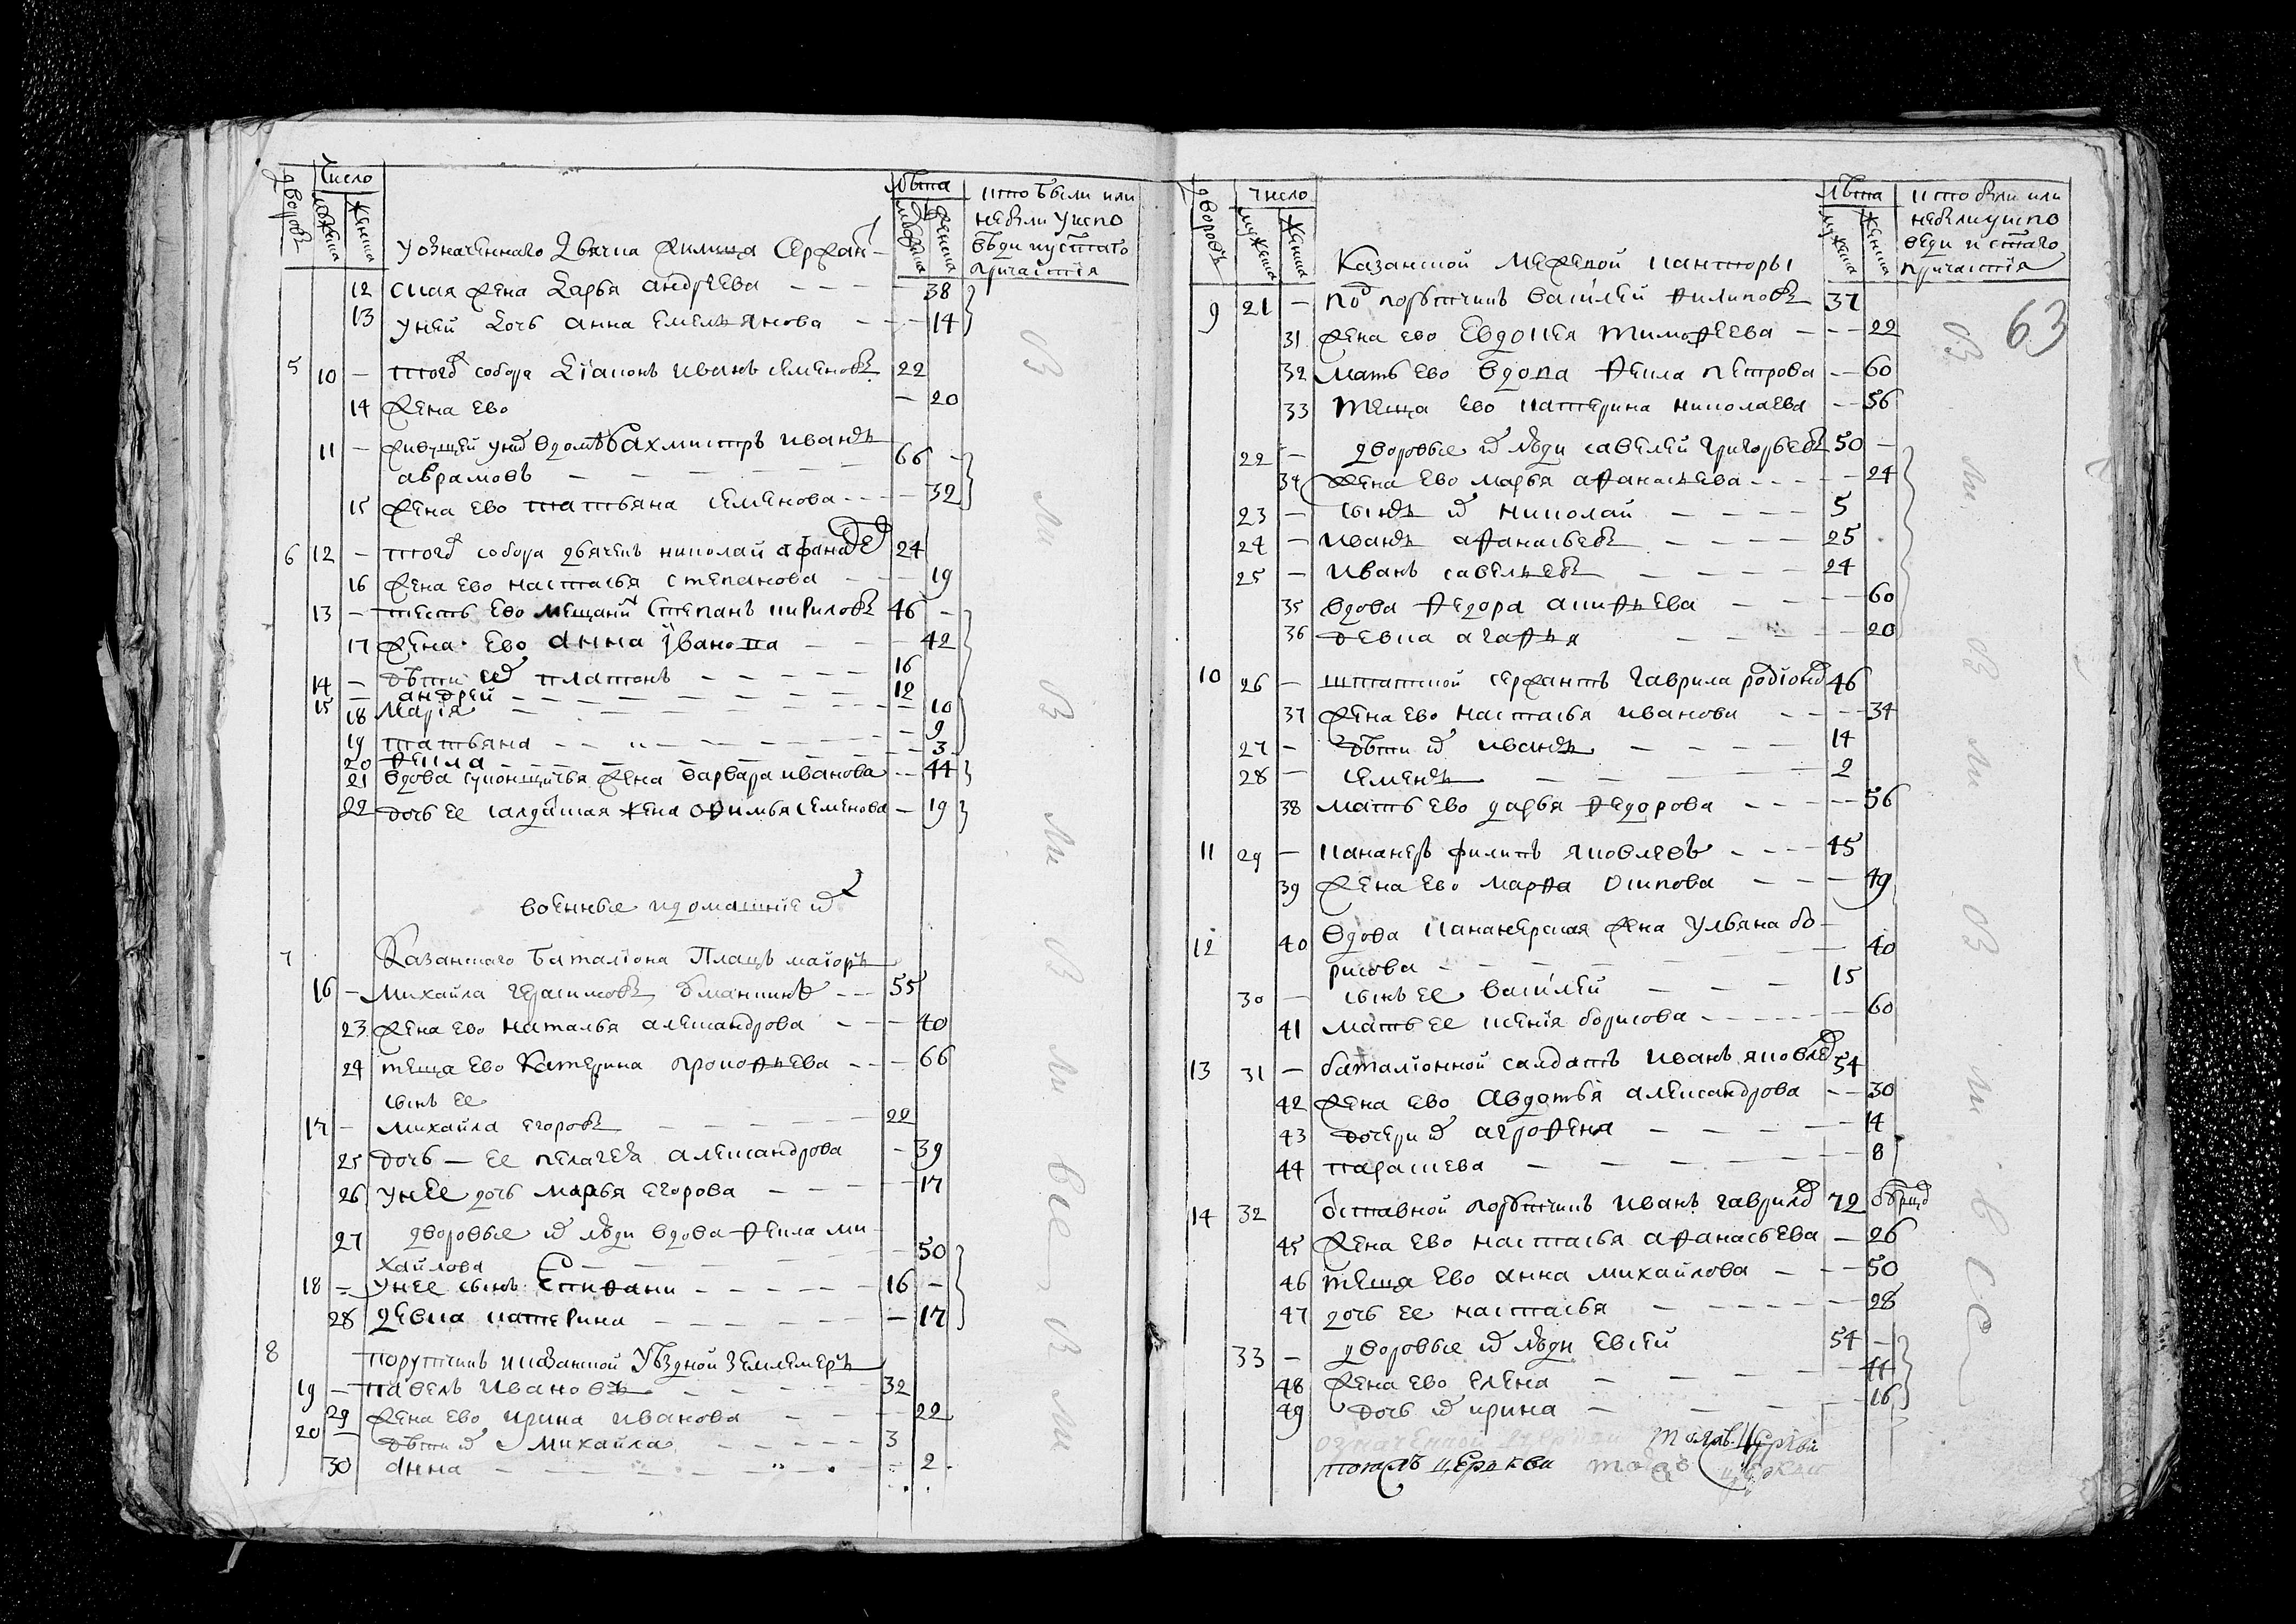 дворовъ
число
мужеска
женска
лѣта
мужеска
женска
кто были или
небыли у испо
вѣди и с̃таго
причастїя
у означеннаго дьячка жилица сержан
12 ская жена дарья андреева — — — 38
13 у ней дочь анна емельянова — — 14
5 10 — тогѡ собора дїаконъ иванъ семеновъ 22
14 жена ево — 20
11 — живущей у нихъ вдомѣ вахмистръ иванъ
абрамовъ — — — 66 —
15 жена ево татьяна семенова — — — 32
6 12 — тогѡ собора дьячекъ николай афанасе 24
16 жена ево настасья степанова — — 19
13 — тесть ево мещанинъ степанъ кириловъ 46 —
17 жена ево анна иванова — — 42
14 — дѣти ихъ платонъ — — — 16
15 — андрей — — — 12
18 марїя — — — 10
19 татьяна — — — 9
20 фекла — — — 3
21 вдова жена варвара иванова — — 44
22 дочь ее салдатская жена офимья семенова — 19
военные и домашние ихъ
7 Казанскаго баталїона Плацъ маїоръ
16 — михайла герасимовъ — — 55
23 жена ево наталья александрова — — 40
24 теща ево катерина прокофьева — — 66
сынъ ее
17 — михайла егоровъ — — — 22
25 дочь — ее пелагея александрова — 39
26 у нее дочь марья егорова — — — 17
27 дворовые ихъ люди вдова фекла ми
хайлова — — — 50
18 — у нее сынъ — — — 16 —
28 девка катерина — — — 17
8 порутчикъ и казанской уѣздной землемеръ
19 — павелъ ивановъ — — — 32
29 жена ево ирина иванова — — 22
20 — дѣти ихъ михайла — — — 3
30 анна — — — 2
ѡ ли ѡ ли ѡ ли ѡ ли все
дворовъ
число
мужеска
женска
лѣта
мужеска
женска
кто были или
небыли у испо
веди и с̃таго
причастїя
63
Казанской межевой канторы
9 21 — подпорутчикъ василей филиповъ 37
31 жена ево евдокея тимофеева — — 22
32 мать ево вдова фекла петрова — — 60
33 теща ево катерина николаева — — 56
22 — дворовые ихъ люди савелей григорьевъ 50 —
34 жена ево марья афанасьева — — — 24
23 — сынъ ихъ николай — — — 5
24 — иванъ афанасьевъ — — — 25
25 — иванъ савельевъ — — — 24
35 вдова федора — — — 60
36 девка агафья — — — 20
10 26 — штатской сержантъ гаврила родїоно 46
37 жена ево настасья иванова — — — 34
27 — дѣти ихъ иванъ — — — 14
28 — семенъ — — — 2
38 мать ево дарья федорова — — — 56
11 29 — кананеръ филипъ яковлевъ — — — 45
39 жена ево марфа осипова — — — 49
12 40 вдова кананерская жена ульяна бо
рисова — — — 40
30 — сынъ ее василей — — — 15
41 мать ее ксенїя борисова — — — 60
13 31 — баталїонной салдатъ иванъ яковле 54
42 жена ево авдотья александрова — — 30
43 дочери ихъ агрофена — — — 14
44 параскева — — — 8
14 32 ѿставной порутчикъ иванъ гаврило 72
45 жена ево настасья афанасьева — 26
46 теща ево анна михайлова — — — 50
47 дочь ее настасья — — — 28
33 — дворовые ихъ люди евсей 54 —
48 жена ево елена — — — 44
49 дочь ихъ ирина — — — 16
церкви
ѡ ли ѡ ли ѡ ли все